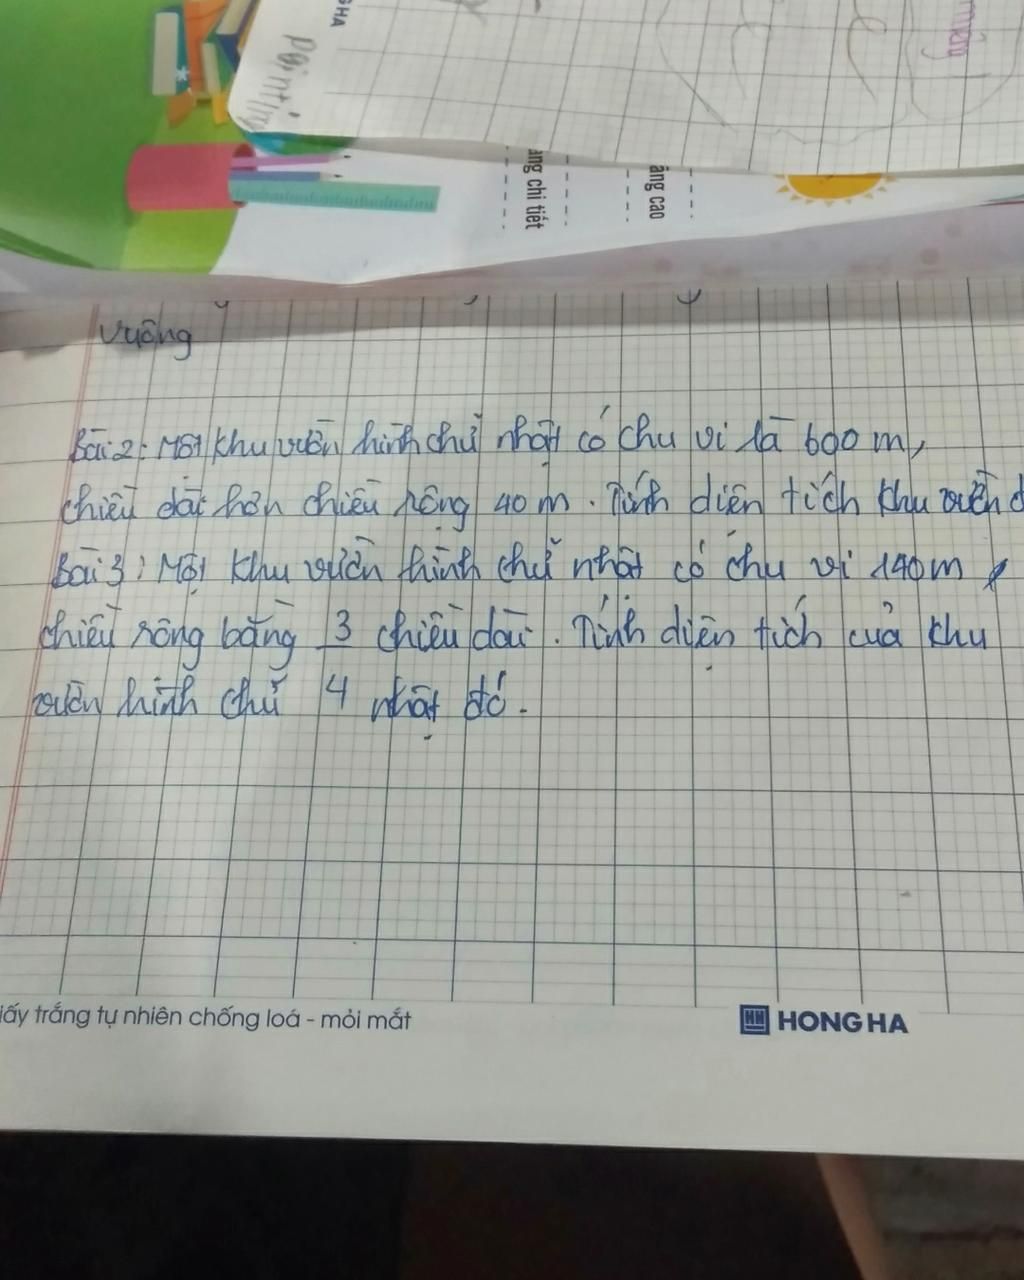 GHA
painting
ảng chi tiết
ảng cao
vuông
Bài 2: Một khu vườn hình chữ nhật có chu vi là 600 m,
chiều dài hơn chiều rộng 40 m. Tính diện tích khu vườn đ
Bài 3: Một khu vườn hình chữ nhật có chu vi 140m,
chiều rộng bằng 3/4 chiều dài. Tính diện tích của khu
vườn hình chữ nhật đó.
iấy trắng tự nhiên chống loá - mỏi mắt
HH HONG HA